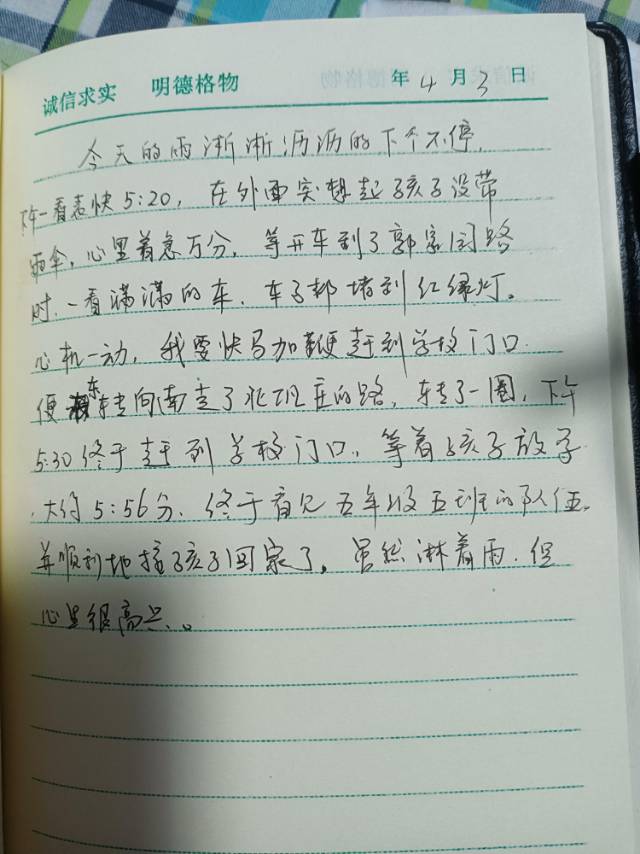 诚信求实 明德格物 年4月3日
今天的雨淅淅沥沥的下个不停.
下午一看表快5:20,在外面突想起孩子没带
雨伞,心里着急万分,等开车到了郭家园路
时.一看满满的车.车子都堵到红绿灯。
心机一动,我要快马加鞭赶到学校门口.
便东转向南走了北 庄的路,转了一圈,下午
5:30终于赶到学校门口,等着孩子放学
.大约5:56分.终于看见五年级五班的队伍.
并顺利地接孩子回家了。虽然淋着雨.但
心里很高兴.。